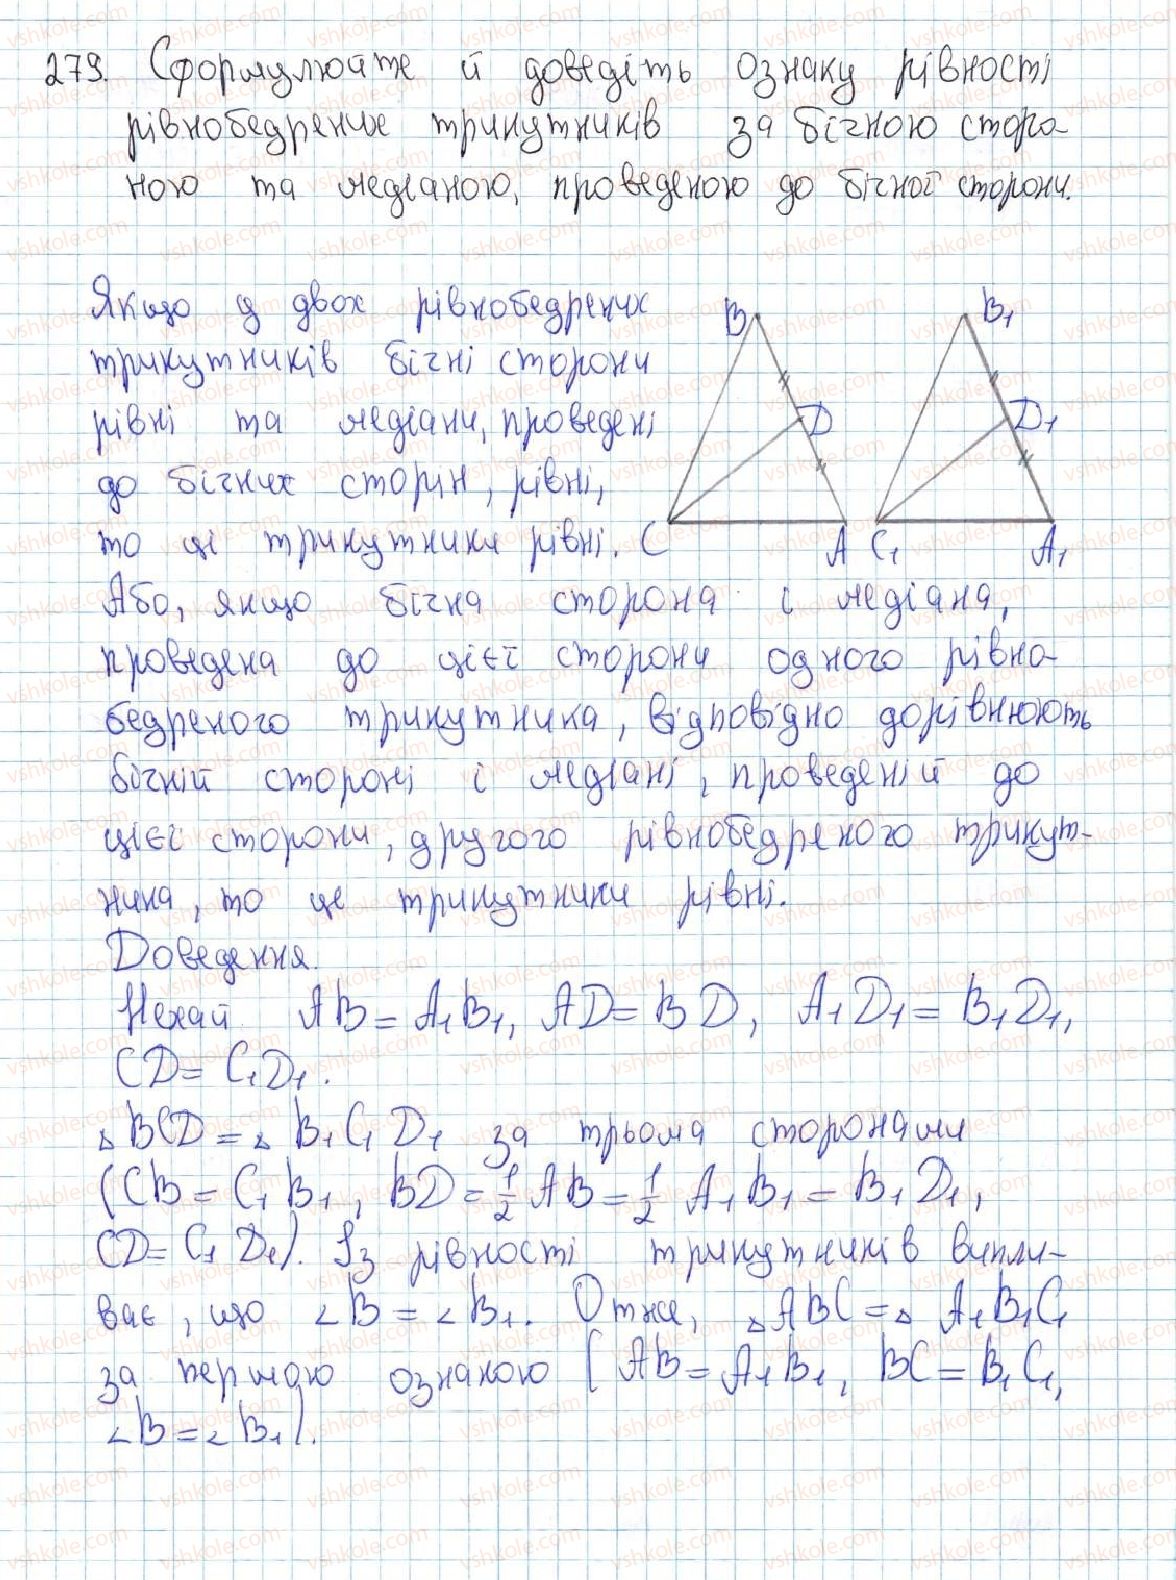 279. Сформулюйте й доведіть ознаку рівності
рівнобедрених трикутників за бічною сторо-
ною та медіаною, проведеною до бічної сторони.
Якщо у двох рівнобедрених
трикутників бічні сторони
рівні та медіани, проведені
до бічних сторін, рівні,
то ці трикутники рівні.
B B₁
D D₁
C A C₁ A₁
Або, якщо бічна сторона і медіана,
проведена до цієї сторони одного рівно-
бедреного трикутника, відповідно дорівнюють
бічній стороні і медіані, проведеній до
цієї сторони, другого рівнобедреного трикут-
ника, то це трикутники рівні.
Доведення.
Нехай AB = A₁B₁, AD = BD, A₁D₁ = B₁D₁,
CD = C₁D₁.
△BCD = △ B₁C₁D₁ за трьома сторонами
(CB = C₁B₁, BD = 1/2 AB = 1/2 A₁B₁ = B₁D₁,
CD = C₁D₁). Із рівності трикутників випли-
ває, що ∠B = ∠B₁. Отже, △ABC = △ A₁B₁C₁
за першою ознакою (AB = A₁B₁, BC = B₁C₁,
∠B = ∠B₁).